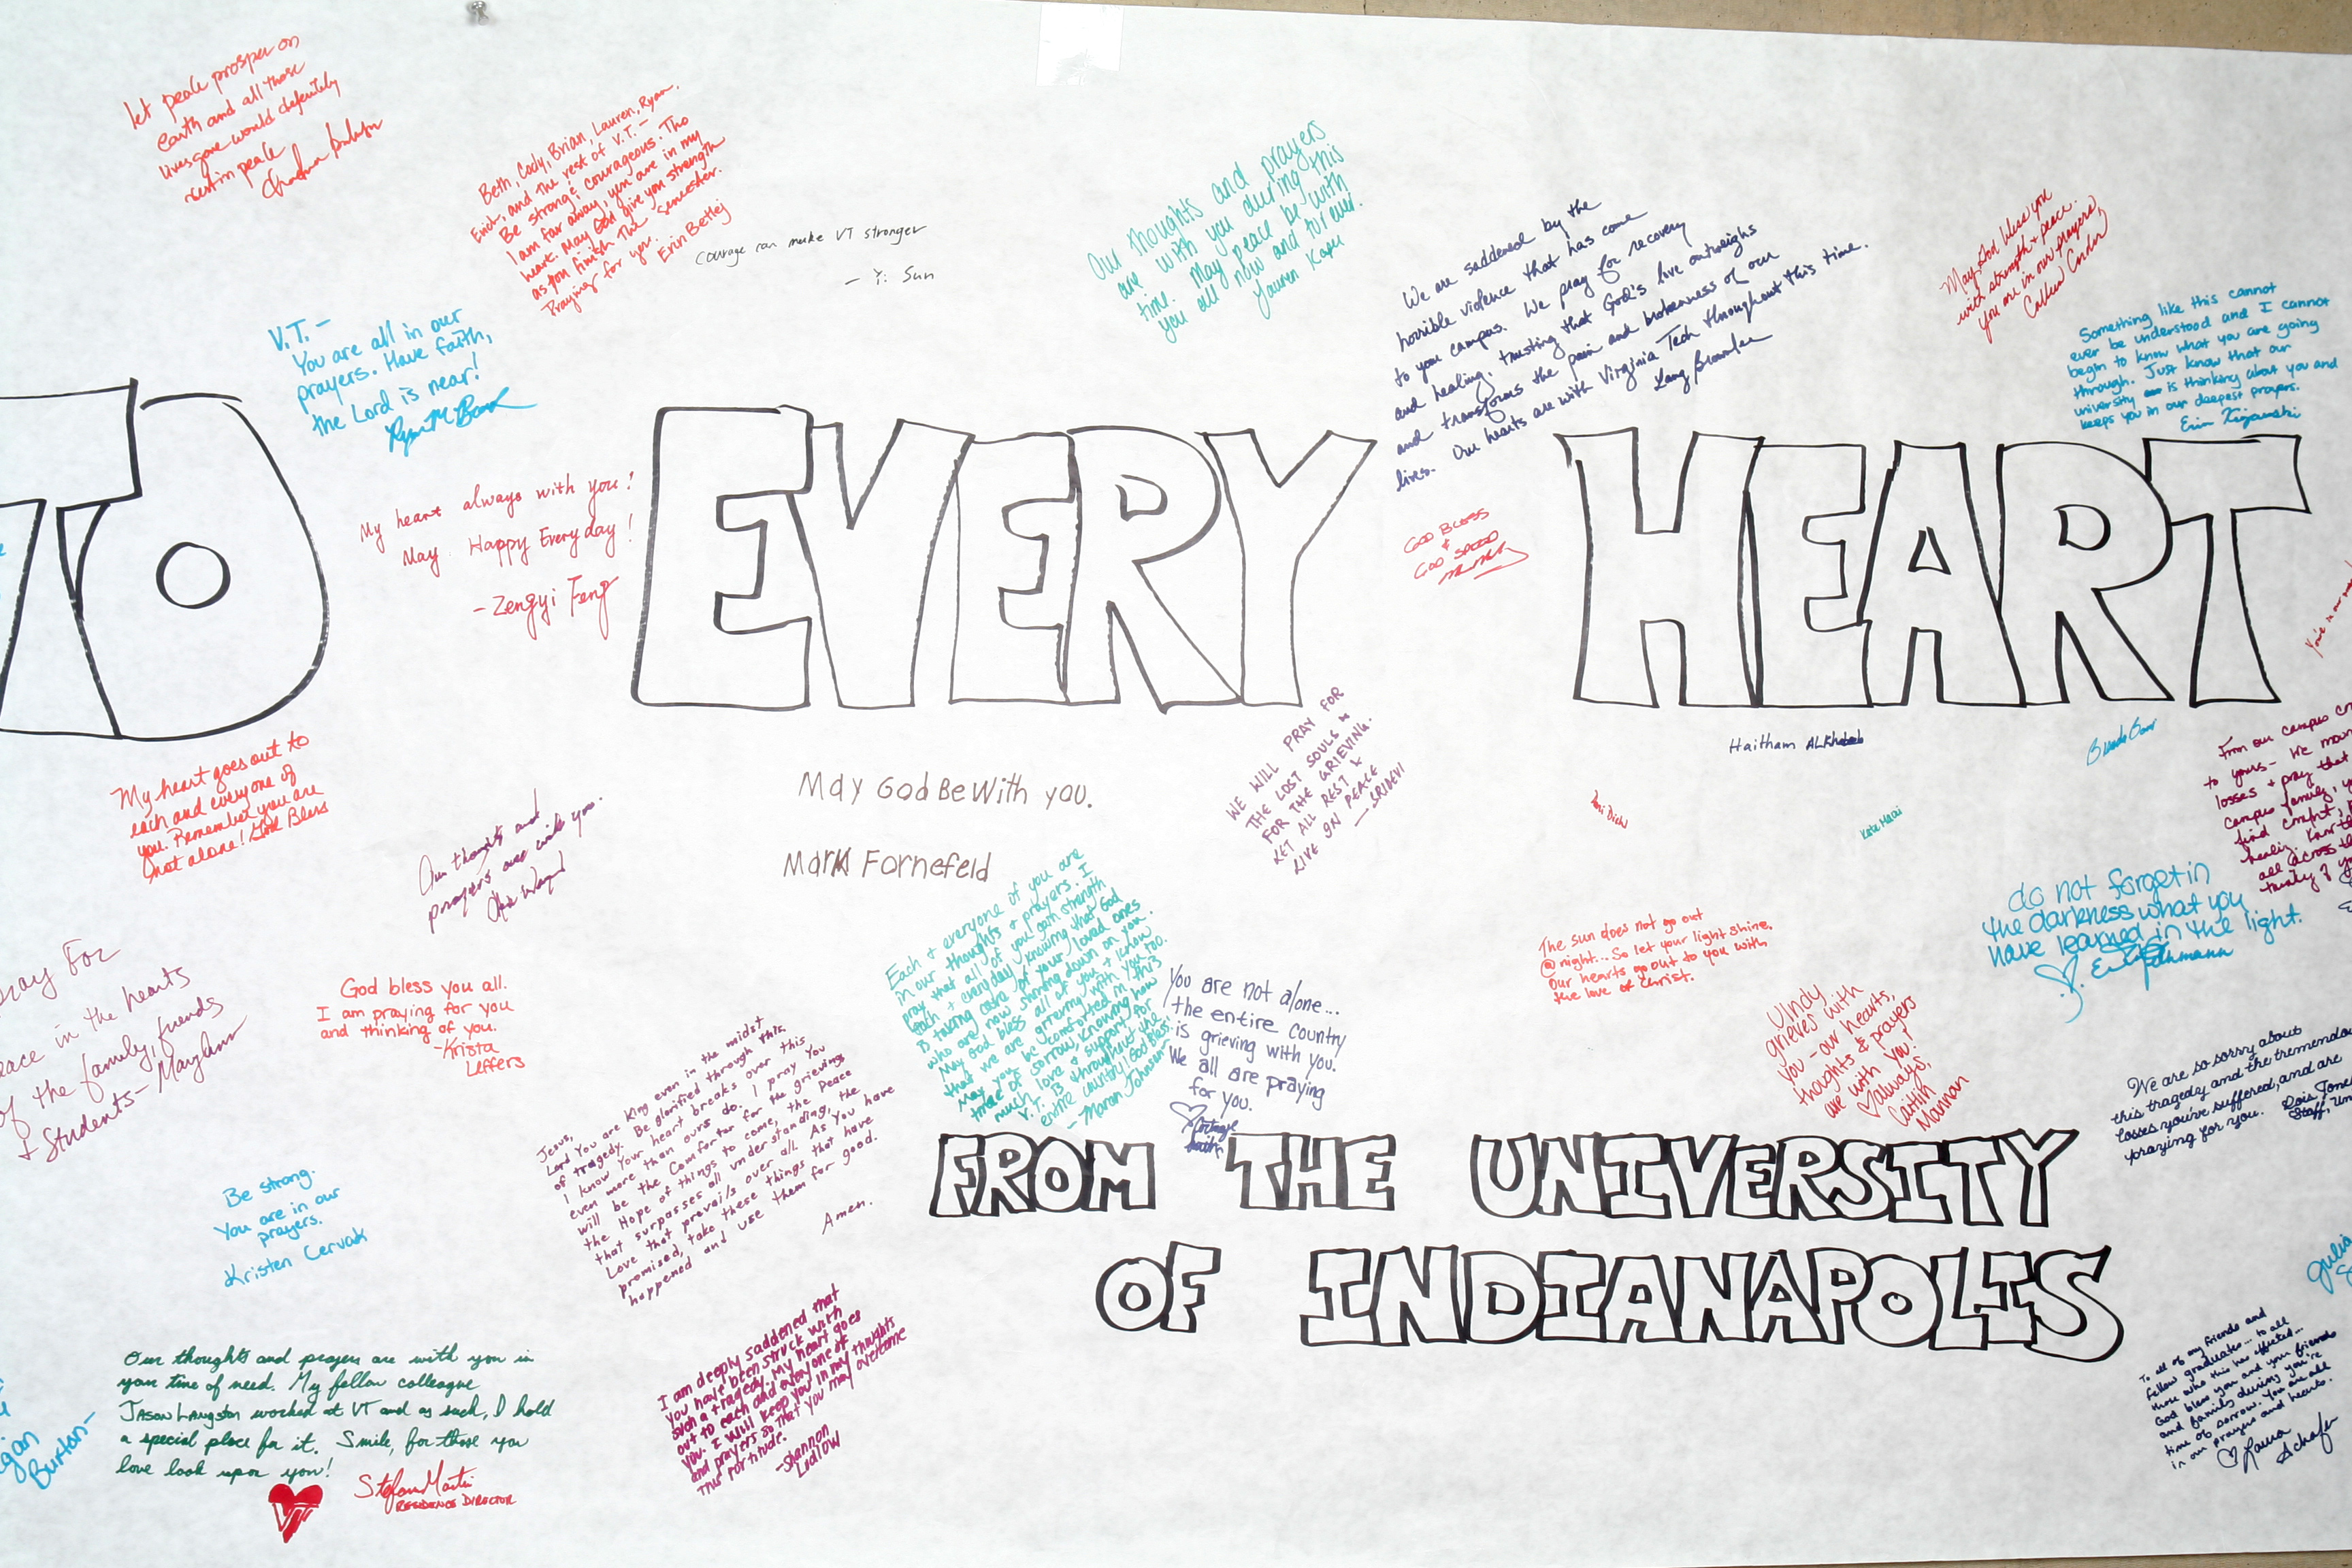 let peace prosper on
earth and all those
lives gone would definitely
rest in peace
Beth, Cody, Brian, Lauren, Ryan,
and the rest of V.T. –
Be strong & courageous. Tho
I am far away, you are in my
heart. May God give you strength
as you finish the semester.
Praying for you.
Erin Betley
Courage can make VT stronger
– Yi Sun
Our thoughts and prayers
are with you during this
time. May peace be with
you all now and forever.
Lauren Kapu
We are saddened by the
horrible violence that has come
to your campus. We pray for recovery
and healing, trusting that God's love outweighs
and transforms the pain and brokenness of our
lives. Our hearts are with Virginia Tech throughout this time.
May God bless you
with strength & peace.
you are in our prayers,
Something like this cannot
ever be understood and I cannot
begin to know what you are going
through. Just know that our
university is thinking about you and
keeps you in our deepest prayers.
V.T. –
You are all in our
prayers. Have faith,
the Lord is near!
TO EVERY HEART
My heart always with you!
May Happy Everyday!
– Zengyi Feng
GOD BLESS
&
GOD SPEED
Haitham
My heart goes out to
each and everyone of
you. Remember you are
not alone! God Bless
Our thoughts and
prayers are with you.
May God Be With you.
Mark Fornefeld
WE WILL PRAY FOR
THE LOST SOULS &
FOR THE GRIEVING.
LET ALL REST &
LIVE IN PEACE
— SRIDEVI
Kate
From our campus
to yours – We mourn
losses & pray that
campus family,
find comfort,
all across
do not forget in
the darkness what you
have learned in the light.
The sun does not go out
@ night... So let your light shine.
Our hearts go out to you with
the love of Christ.
Each & everyone of you are
in our thoughts & prayers. I
pray that all of you gain strength
each & everyday knowing that God
is taking care of your loved ones
who are now shining down on you.
May God bless all of you & know
that we are grieving with you, too.
May you be comforted in this
time of sorrow, knowing how
much love & support for
V.T. is throughout the
entire country! God Bless!
You are not alone...
the entire country
is grieving with you.
We all are praying
for you.
UIndy
grieves with
you – our hearts,
thoughts & prayers
are with you!
always,
Caitlin
Mannan
Pray For
peace in the hearts
of the family, friends
& Students – MaryAnn
God bless you all.
I am praying for you
and thinking of you.
-Krista
Leffers
Jesus,
Lord You are King even in the midst
of tragedy. Be glorified through this.
I know Your heart breaks over this
even more than ours do. I pray You
will be the Comforter for the grieving
the Hope of things to come, the Peace
that surpasses all understanding, the
Love that prevails over all. As You have
promised, take these things that have
happened and use them for good.
Amen.
We are so sorry about
this tragedy and the tremendous
losses you've suffered, and are
praying for you.
Be strong.
You are in our
prayers.
Kristen Cervak
FROM THE UNIVERSITY
OF INDIANAPOLIS
Our thoughts and prayers are with you in
your time of need. My fellow colleague
Jason Langston worked at VT and as such, I hold
a special place for it. Smile, for those you
love look upon you!
RESIDENCE DIRECTOR
VT
Burton –
I am deeply saddened that
you have been struck with
such a tragedy. My heart goes
out to each and every one of
you. I will keep you in my thoughts
and prayers so that you may overcome
this fortitude.
-Shannon
Ludlow
Julia
To all of my friends and
fellow graduates... to all
those who this has effected...
God bless you and your friends
and family during you're
time of sorrow. You are all
in our prayers and hearts.
Laura
Schafer